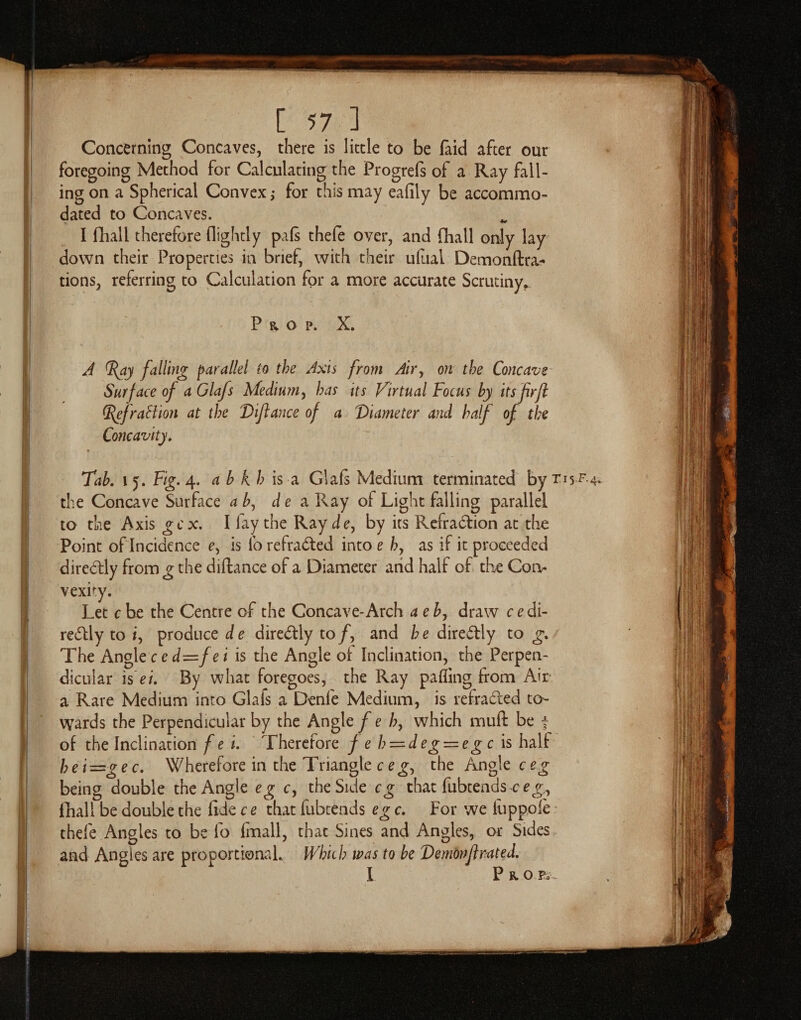 [ 57 ]
Concerning Concaves, there is little to be ſaid after our
foregoing Method for Calculating the Progreſs of a Ray fall-
ing on a Spherical Convex; for this may eaſily be accommo-
dated to Concaves.
I ſhall therefore ſlightly paſs theſe over, and ſhall only lay
down their Properties in brief, with their uſual Demonſtra-
tions, referring to Calculation for a more accurate Scrutiny.
PROP. X.
A Ray falling parallel to the Axis from Air, on the Concave
Surface of a Glaſs Medium, has its Virtual Focus by its firſt
Refraction at the Diſtance of a Diameter and half of the
Concavity.
Tab. 15. Fig. 4. a b k h is a Glaſs Medium terminated by T15.F.4.
the Concave Surface ab, de a Ray of Light falling parallel
to the Axis gcx. I ſay the Ray de, by its Refraction at the
Point of Incidence e, is ſo refracted into e h, as if it proceeded
directly from g the diſtance of a Diameter and half of the Con-
vexity.
Let c be the Centre of the Concave-Arch aeb, draw ce di-
rectly to i, produce de directly to f, and he directly to g.
The Angle c e d=f e i is the Angle of Inclination, the Perpen-
dicular is ei. By what foregoes, the Ray paſſing from Air
a Rare Medium into Glaſs a Denſe Medium, is refracted to-
wards the Perpendicular by the Angle f e h, which muſt be
of the Inclination f e i. Therefore f e h=d e g=e g c is half
h e i=g e c. Wherefore in the Triangle c e g, the Angle c e g
being double the Angle e g c, the Side c g that ſubtends c e g,
ſhall be double the ſide c e that ſubtends e g c. For we ſuppoſe
theſe Angles to be ſo ſmall, that Sines and Angles, or Sides
and Angles are proportional. Which was to be Demonſtrated.
I PROP.